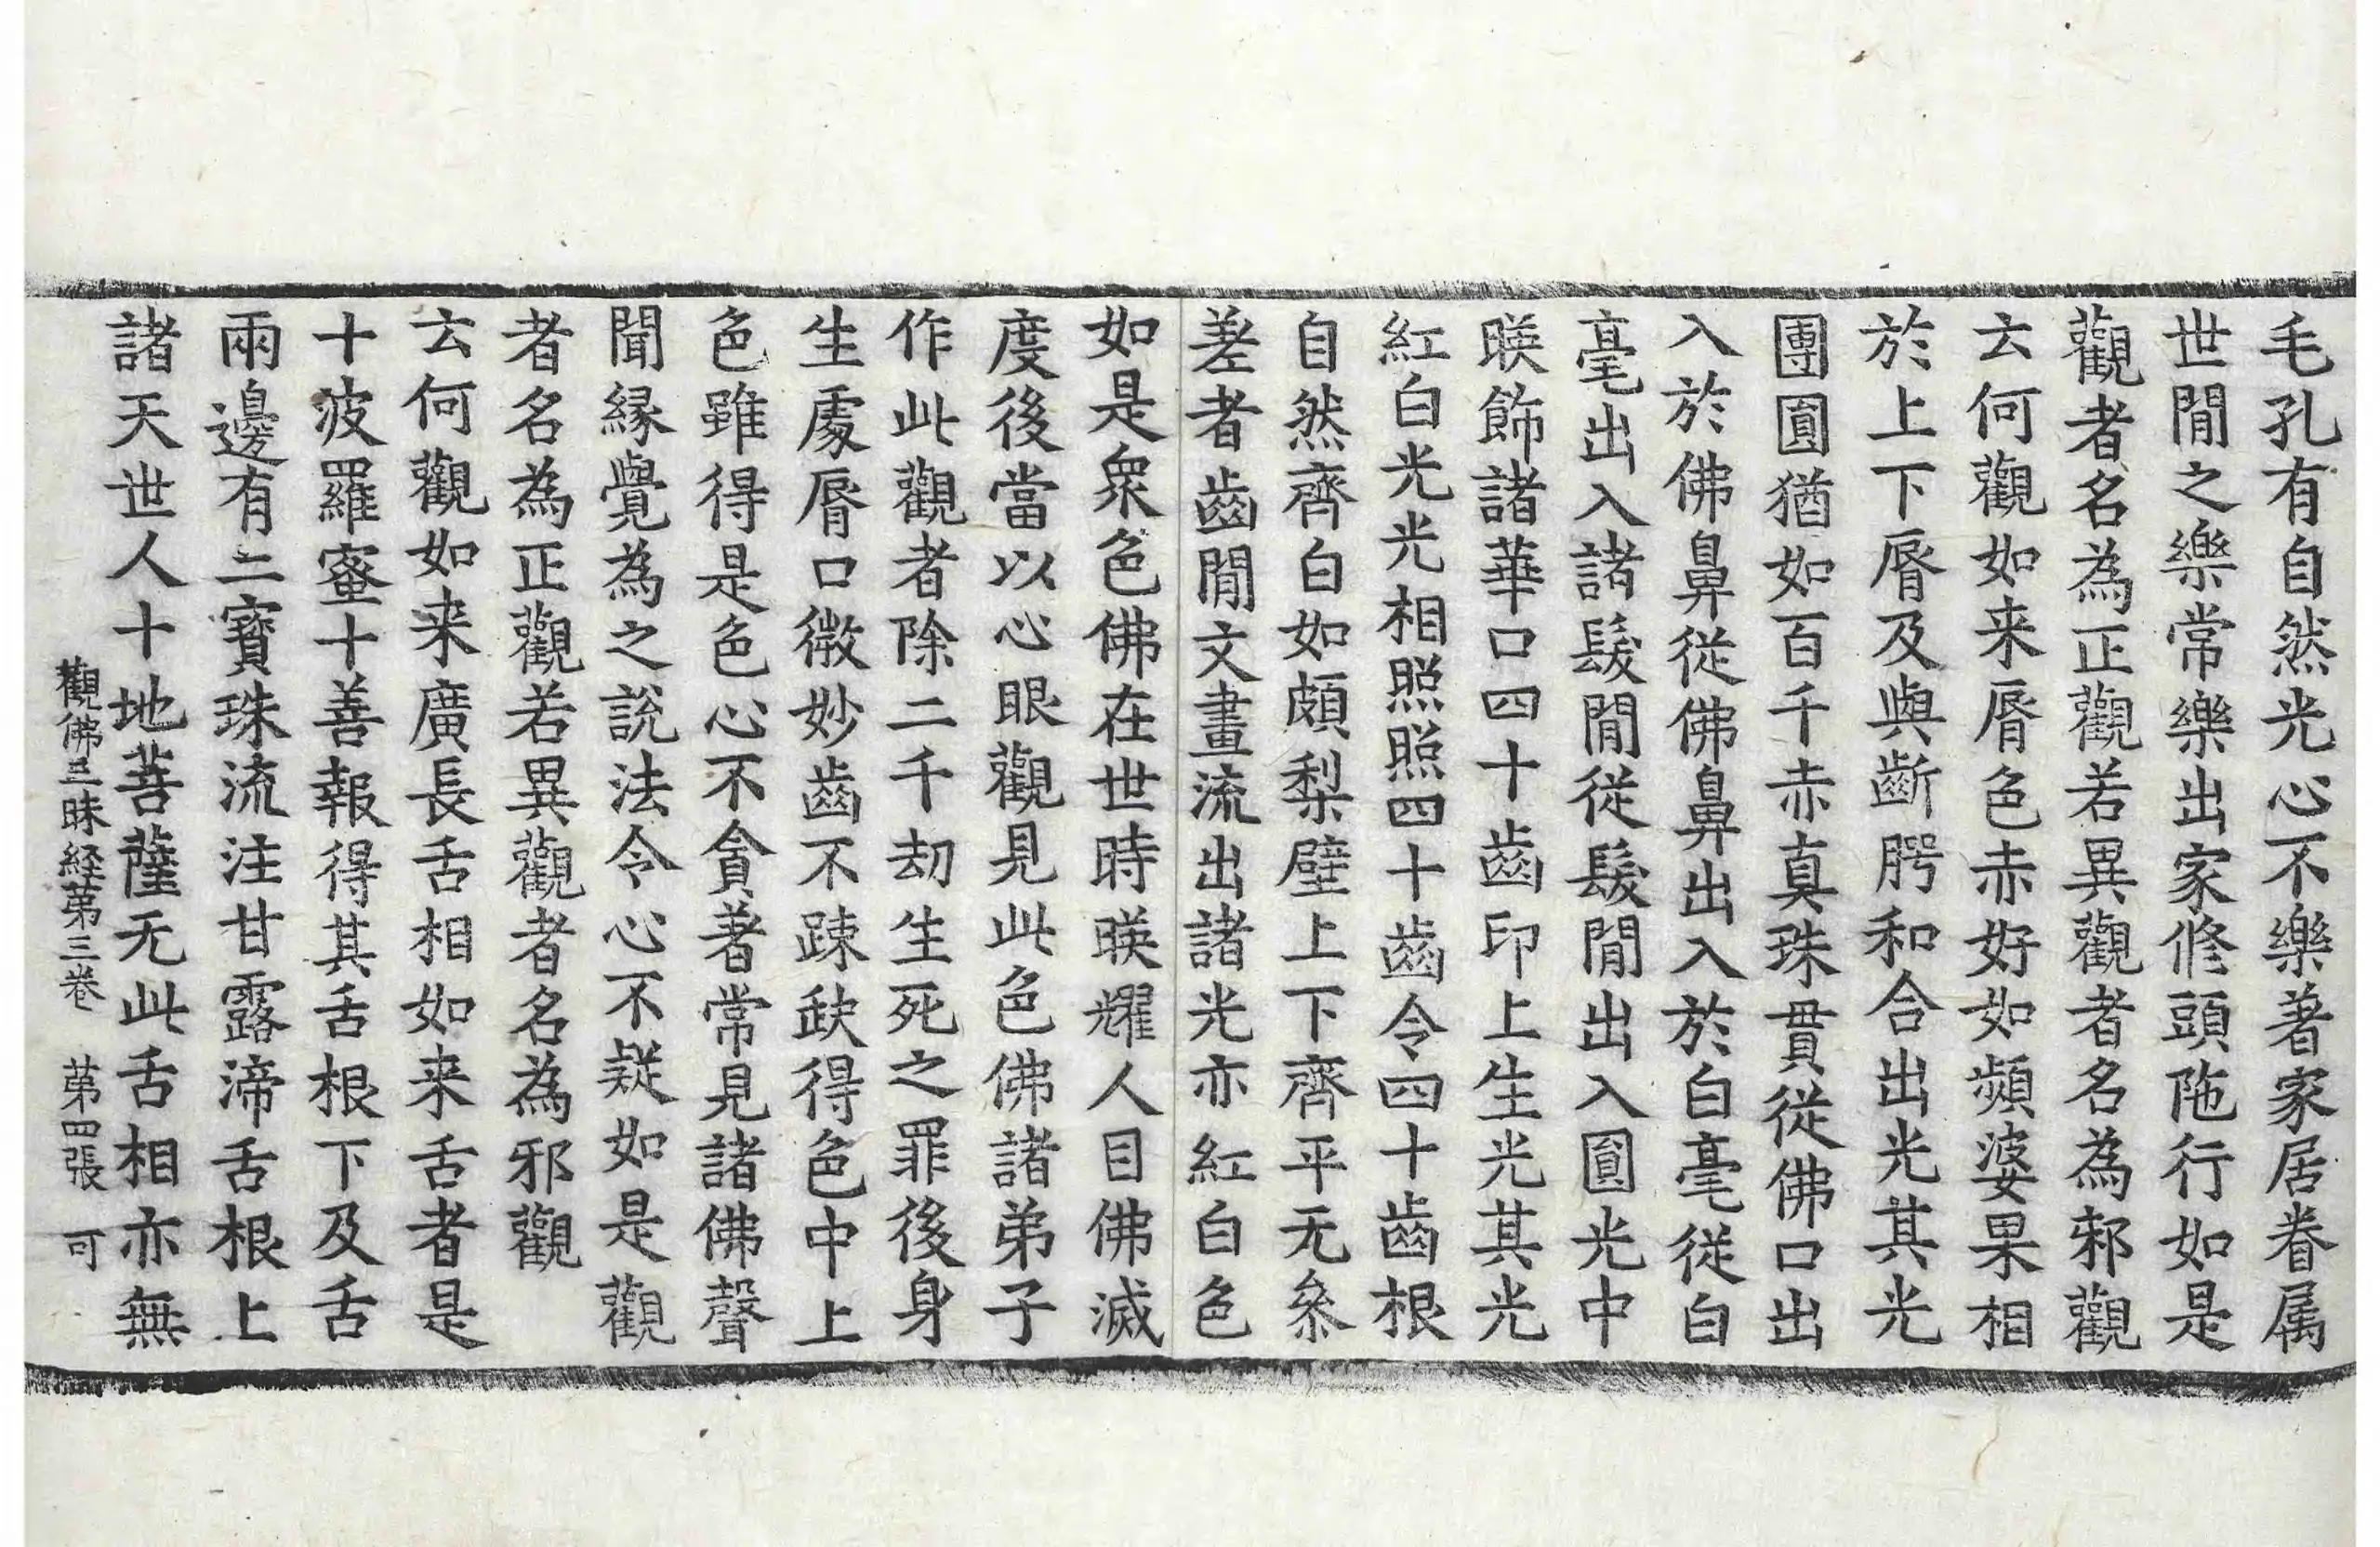 毛孔有自然光心不樂著家居眷属
世閒之樂常樂出家修頭陁行如是
觀者名為正觀若異觀者名為邪觀
云何觀如来脣色赤好如頻婆果相
於上下脣及與齗腭和合出光其光
團圓猶如百千赤真珠貫從佛口出
入於佛鼻從佛鼻出入於白毫從白
毫出入諸髮閒從髮閒出入圓光中
暎飾諸華口四十齒印上生光其光
紅白光光相照照四十齒令四十齒根
自然齊白如頗梨壁上下齊平无叅
差者齒閒文畫流出諸光亦紅白色
如是衆色佛在世時暎耀人目佛滅
度後當以心眼觀見此色佛諸弟子
作此觀者除二千劫生死之罪後身
生處脣口微妙齒不踈缺得色中上
色雖得是色心不貪著常見諸佛聲
聞緣覺為之說法令心不疑如是觀
者名為正觀若異觀者名為邪觀
云何觀如来廣長舌相如来舌者是
十波羅蜜十善報得其舌根下及舌
兩邊有二寶珠流注甘露渧舌根上
諸天世人十地菩薩无此舌相亦無
觀佛三昧経第三卷 第四張 可